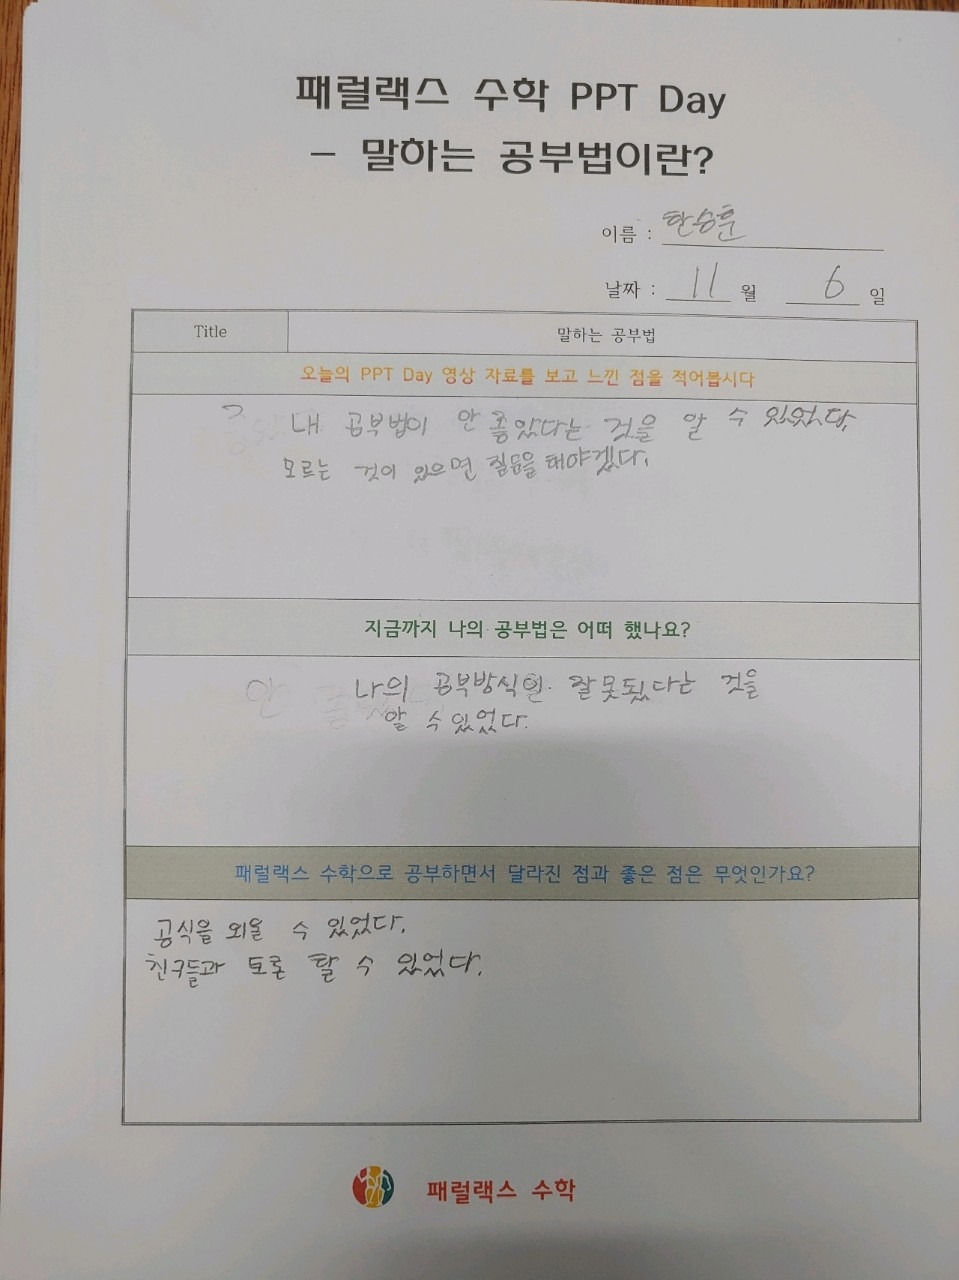 패럴랙스 수학 PPT Day
- 말하는 공부법이란?
이름 : 한승훈
날짜 : 11 월 6 일
Title 말하는 공부법
오늘의 PPT Day 영상 자료를 보고 느낀 점을 적어봅시다
내 공부법이 안 좋았다는 것을 알 수 있었다.
모르는 것이 있으면 질문을 해야겠다.
지금까지 나의 공부법은 어떠 했나요?
나의 공부방식이 잘못됬다는 것을
알 수 있었다.
패럴랙스 수학으로 공부하면서 달라진 점과 좋은 점은 무엇인가요?
공식을 외울 수 있었다.
친구들과 토론 할 수 있었다.
패럴랙스 수학